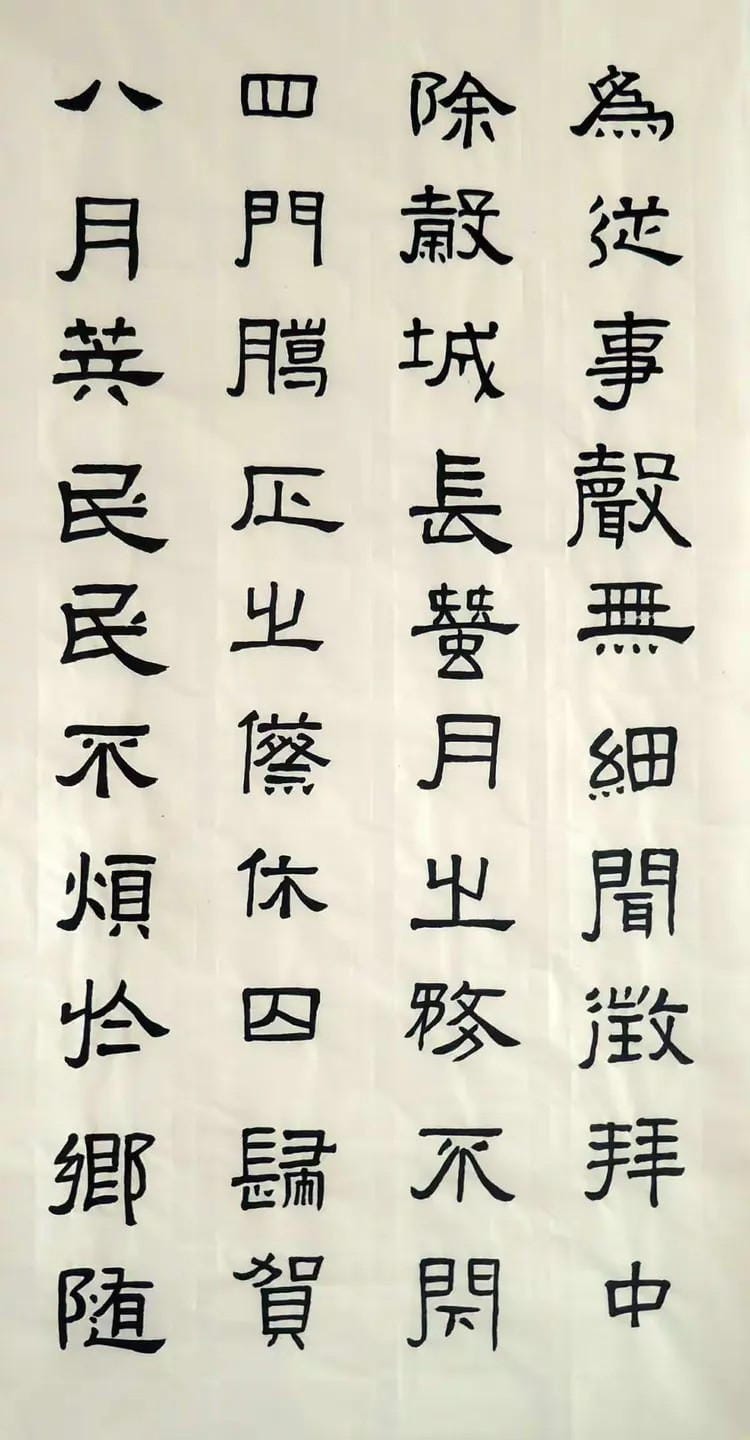 為從事聲無細聞徵拜中
除穀城長蠶月之務不閉
四門臈正之僚休囚歸賀
八月筭民民不煩於鄉随